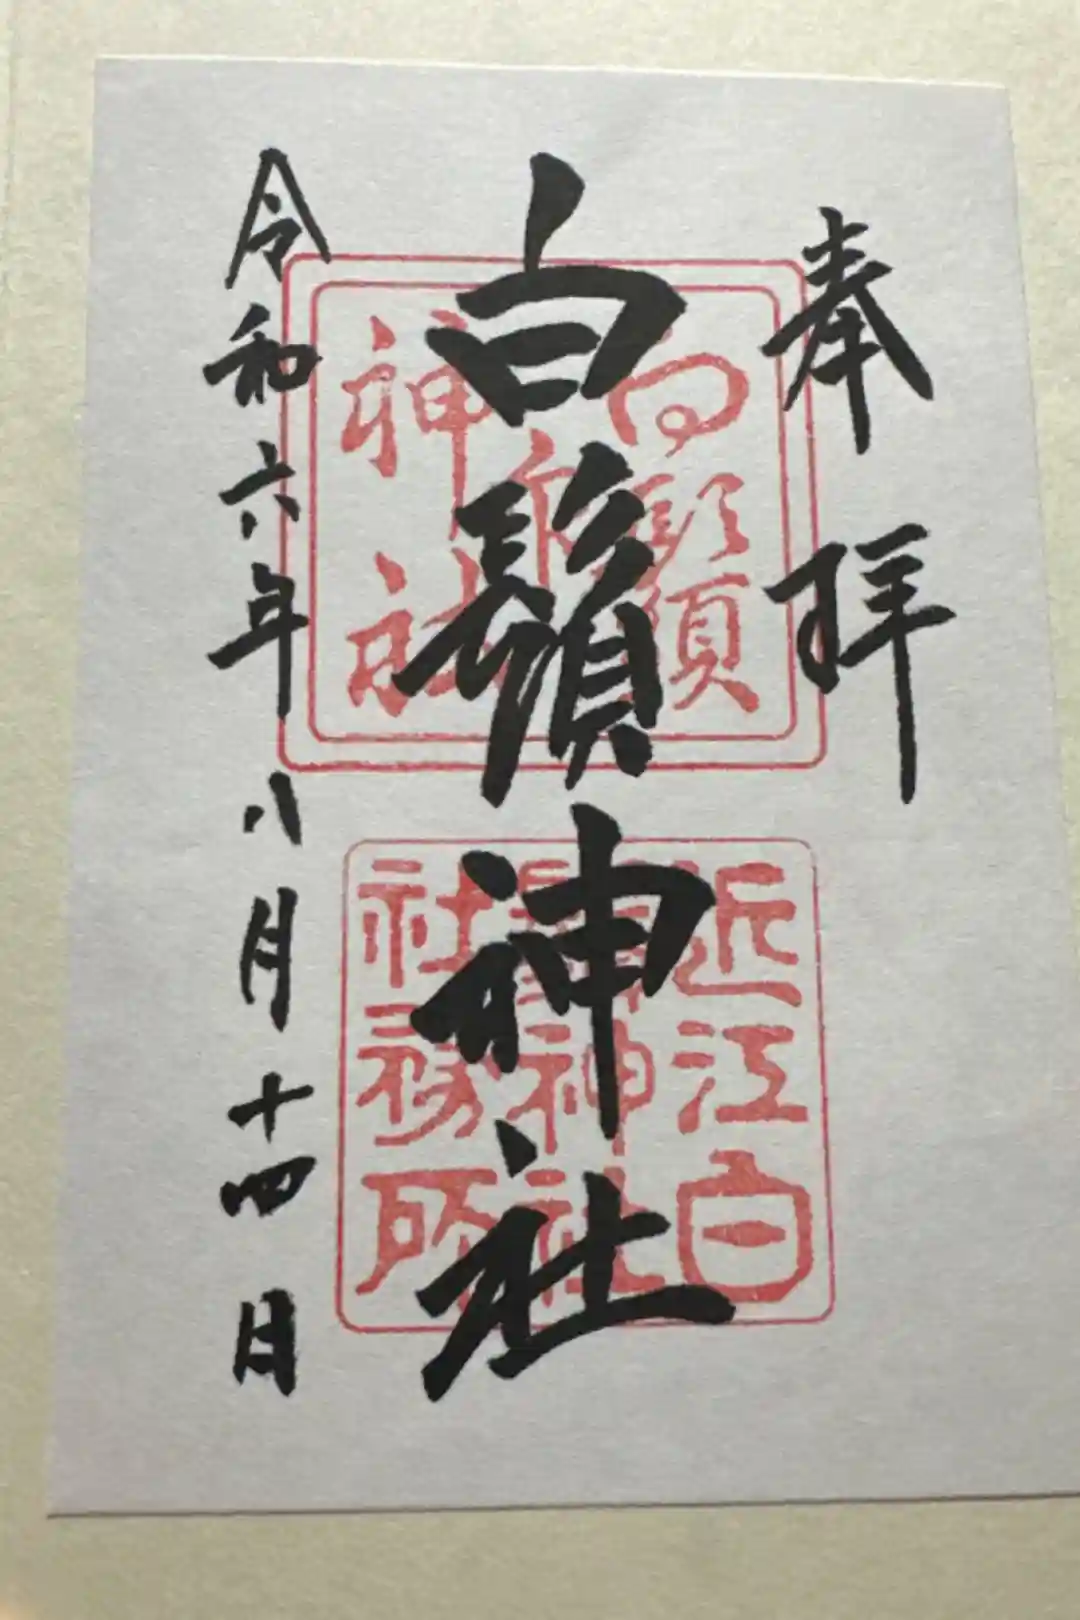 奉拝
白鬚神社
令和六年八月十四日
近江白
神社
社務所